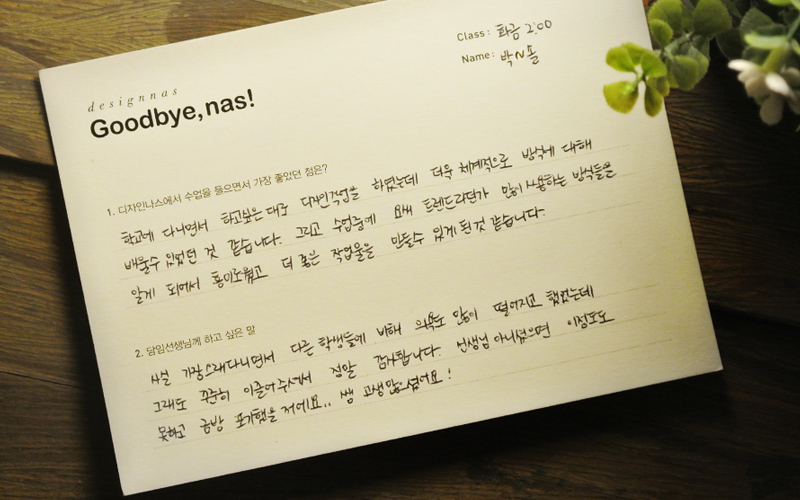 Class : 화금 2:00
Name : 박N솔
designnas
Goodbye,nas!
1. 디자인나스에서 수업을 들으면서 가장 좋았던 점은?
학교에 다니면서 하고싶은대로 디자인작업을 하였는데 더욱 체계적으로 방식에 대해
배울수 있었던 것 같습니다. 그리고 수업중에 요새 트렌드라던가 많이 사용하는 방식들을
알게 되어서 흥미로웠고 더 좋은 작업물을 만들수 있게 된것 같습니다.
2. 담임선생님께 하고 싶은 말
사실 가장오래다니면서 다른 학생들에 비해 의욕도 많이 떨어지고 했었는데
그래도 꾸준히 이끌어주셔서 정말 감사합니다. 선생님 아니셨으면 이정도도
못하고 금방 포기했을 거에요.. 쌤 고생많으셨어요!